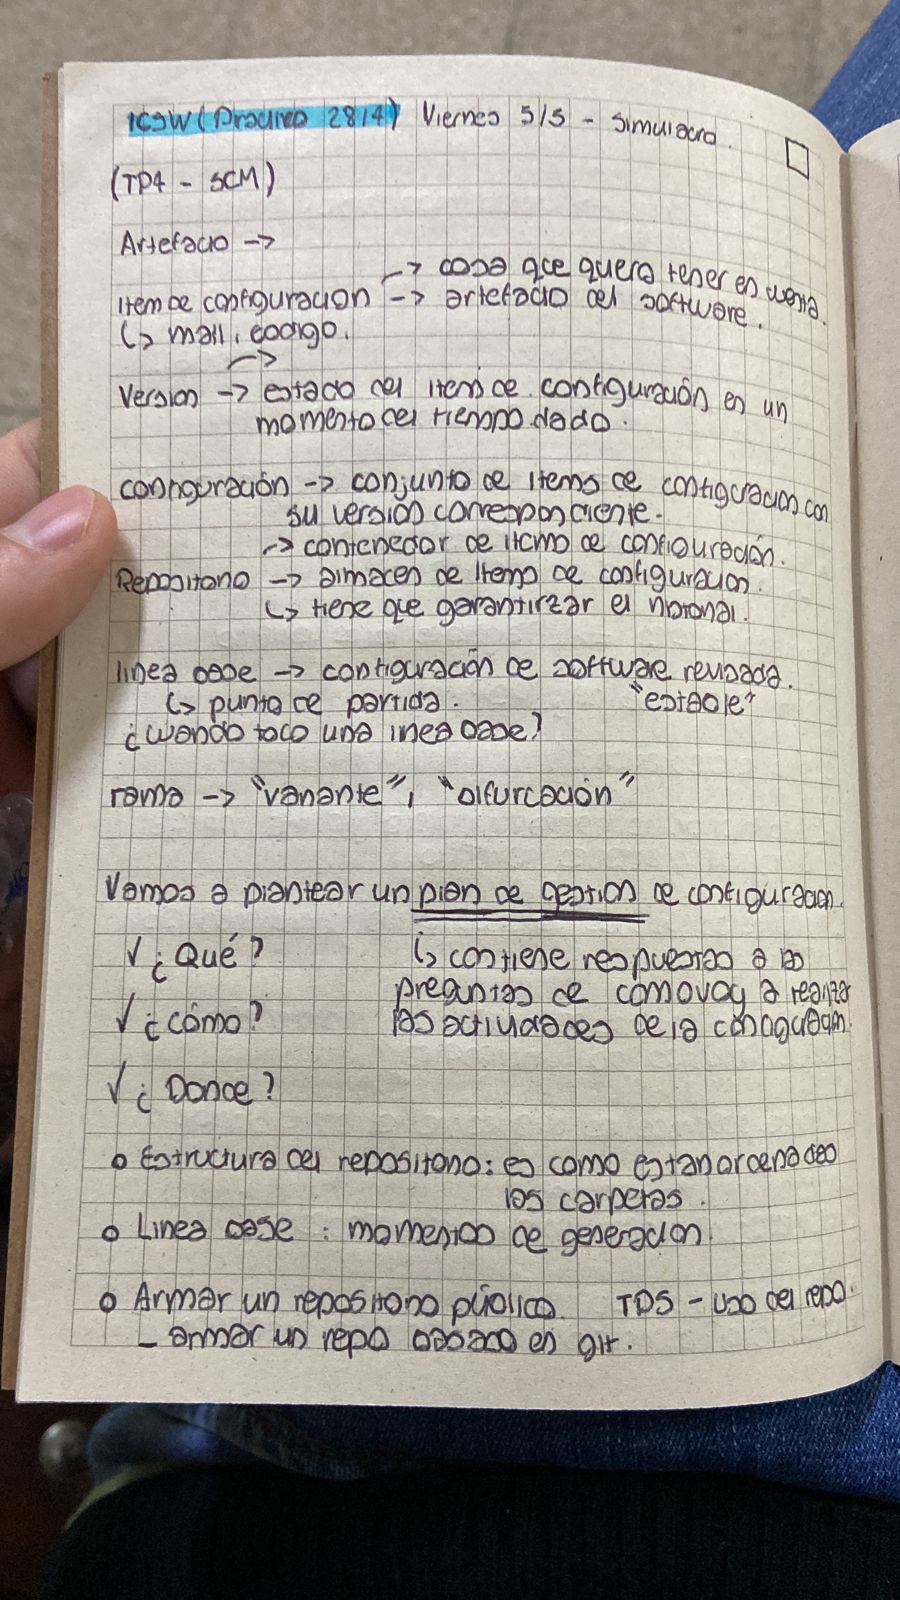 ICSW (Práctico 28/4) Viernes 5/5 - Simulacro.
(TP4 - SCM)
Artefacto ->
-> cosa que quero tener en cuenta.
Item de configuracion -> artefacto del software.
↳ mail, codigo.
Version -> estado del item de configuración en un
momento del tiempo dado.
configuración -> conjunto de items de configuracion con
su version correspondiente.
-> contenedor de items de configuración.
Repositorio -> almacen de items de configuracion.
↳ tiene que garantirzar el historial.
linea base -> configuración de software revisada.
↳ punto de partida. "estable"
¿cuando toco una linea base?
rama -> "variante", "bifurcación"
Vamos a plantear un plan de gestion de configuracion.
✓ ¿Qué? ↳ contiene respuestas a las
preguntas de como voy a realizar
✓ ¿cómo? las actividades de la configuracion.
✓ ¿Donde?
o Estructura del repositorio: es como estan ordenadas
las carpetas.
o Linea base : momentos de generacion.
o Armar un repositorio público. TP5 - uso del repo.
- armar un repo basado en git.